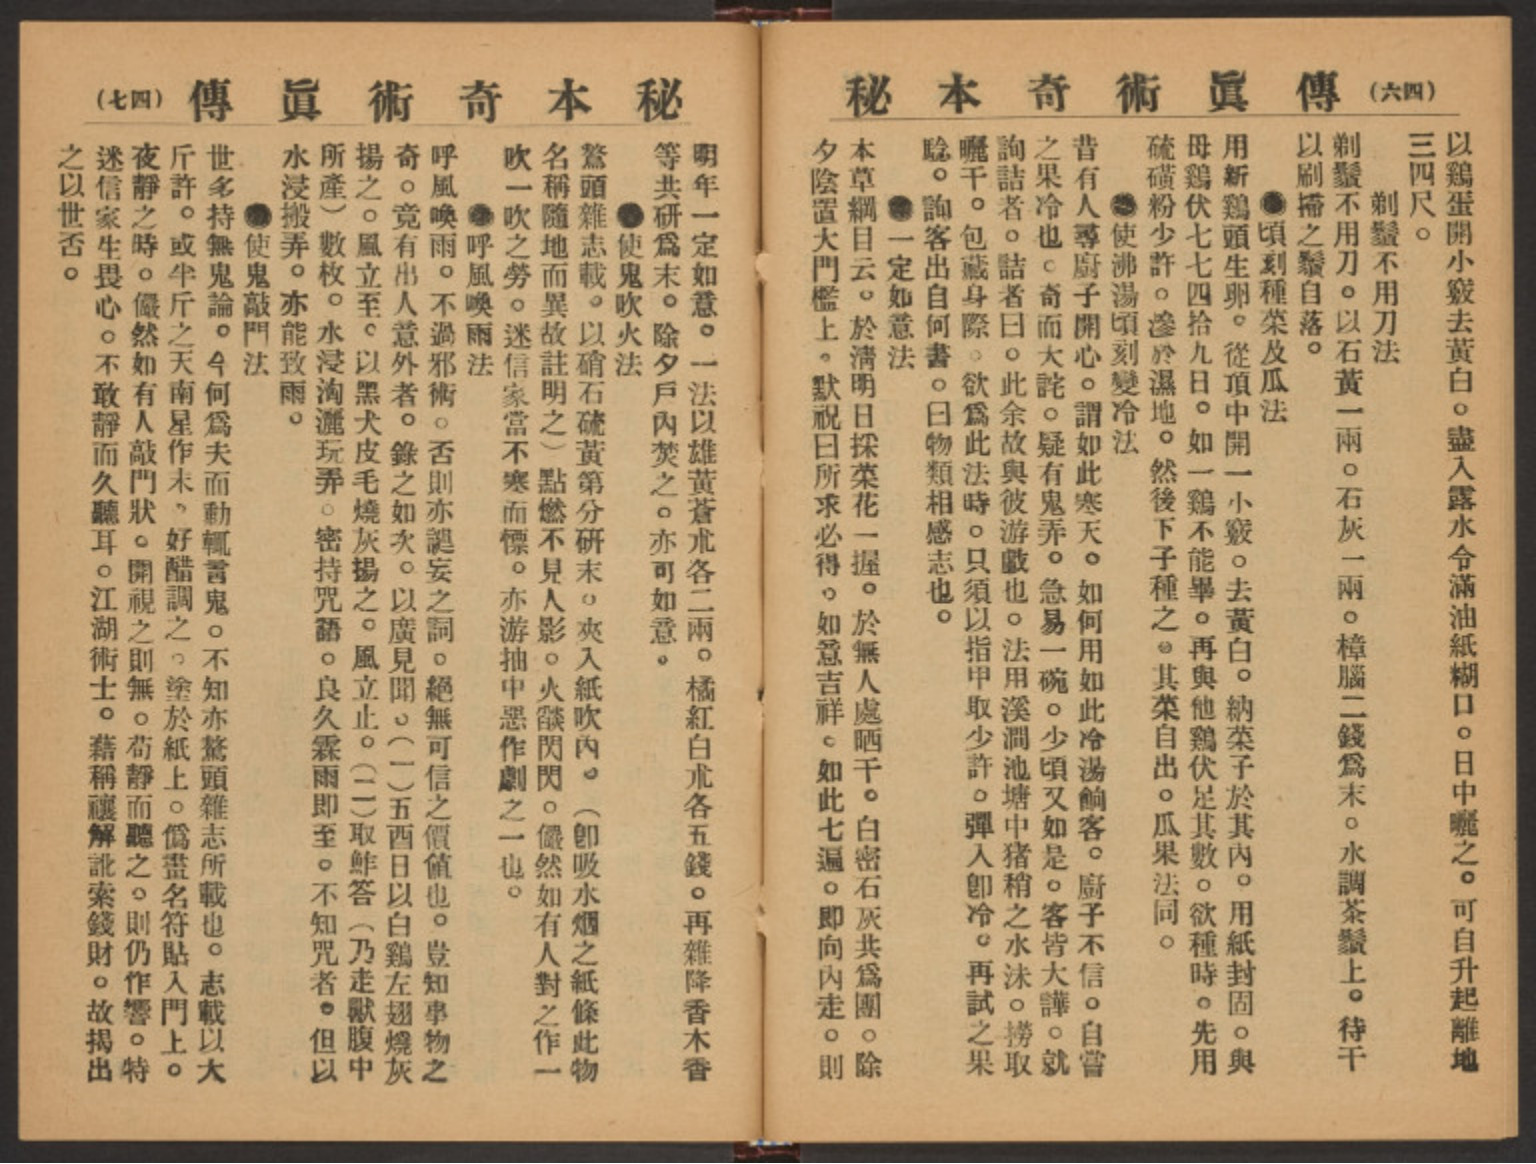 秘本奇術眞傳 (四六)
以鷄蛋開小竅去黃白。盡入露水令滿油紙糊口。日中曬之。可自升起離地
三四尺。
剃鬚不用刀法
剃鬚不用刀。以石黃一兩。石灰一兩。樟腦二錢爲末。水調茶鬚上。待干
以刷掃之鬚自落。
●頃刻種菜及瓜法
用新鷄頭生卵。從頂中開一小竅。去黃白。納菜子於其內。用紙封固。與
母鷄伏七七四拾九日。如一鷄不能畢。再與他鷄伏足其數。欲種時。先用
硫磺粉少許。滲於濕地。然後下子種之。其菜自出。瓜果法同。
●使沸湯頃刻變冷法
昔有人尋廚子開心。謂如此寒天。如何用如此冷湯餉客。廚子不信。自嘗
之果冷也。奇而大詫。疑有鬼弄。急易一碗。少頃又如是。客皆大譁。就
詢詰者。詰者曰。此余故與彼游戲也。法用溪澗池塘中猪稍之水沫。撈取
曬干。包藏身際。欲爲此法時。只須以指甲取少許。彈入卽冷。再試之果
騐。詢客出自何書。曰物類相感志也。
●一定如意法
本草綱目云。於淸明日採菜花一握。於無人處晒干。白密石灰共爲團。除
夕陰置大門檻上。默祝曰所求必得。如意吉祥。如此七遍。即向內走。則
秘本奇術眞傳 (四七)
明年一定如意。一法以雄黃蒼朮各二兩。橘紅白朮各五錢。再雜降香木香
等共研爲末。除夕戶內焚之。亦可如意。
●使鬼吹火法
鰲頭雜志載。以硝石硫黃第分研末。夾入紙吹內。（卽吸水烟之紙條此物
名稱隨地而異故註明之）點燃不見人影。火燄閃閃。儼然如有人對之作一
吹一吹之勞。迷信家當不寒而慄。亦游抽中惡作劇之一也。
●呼風喚雨法
呼風喚雨。不過邪術。否則亦謎妄之詞。絕無可信之價値也。豈知事物之
奇。竟有出人意外者。錄之如次。以廣見聞。（一）五酉日以白鷄左翅燒灰
揚之。風立至。以黑犬皮毛燒灰揚之。風立止。（二）取鮓答（乃走獸腹中
所產）數枚。水浸淘灑玩弄。密持咒語。良久霖雨即至。不知咒者。但以
水浸搬弄。亦能致雨。
●使鬼敲門法
世多持無鬼論。今何爲夫而動輒言鬼。不知亦鰲頭雜志所載也。志載以大
斤許。或半斤之天南星作末，好醋調之。塗於紙上。僞畫名符貼入門上。
夜靜之時。儼然如有人敲門狀。開視之則無。苟靜而聽之。則仍作響。特
迷信家生畏心。不敢靜而久聽耳。江湖術士。藉稱禳解訛索錢財。故揭出
之以世否。